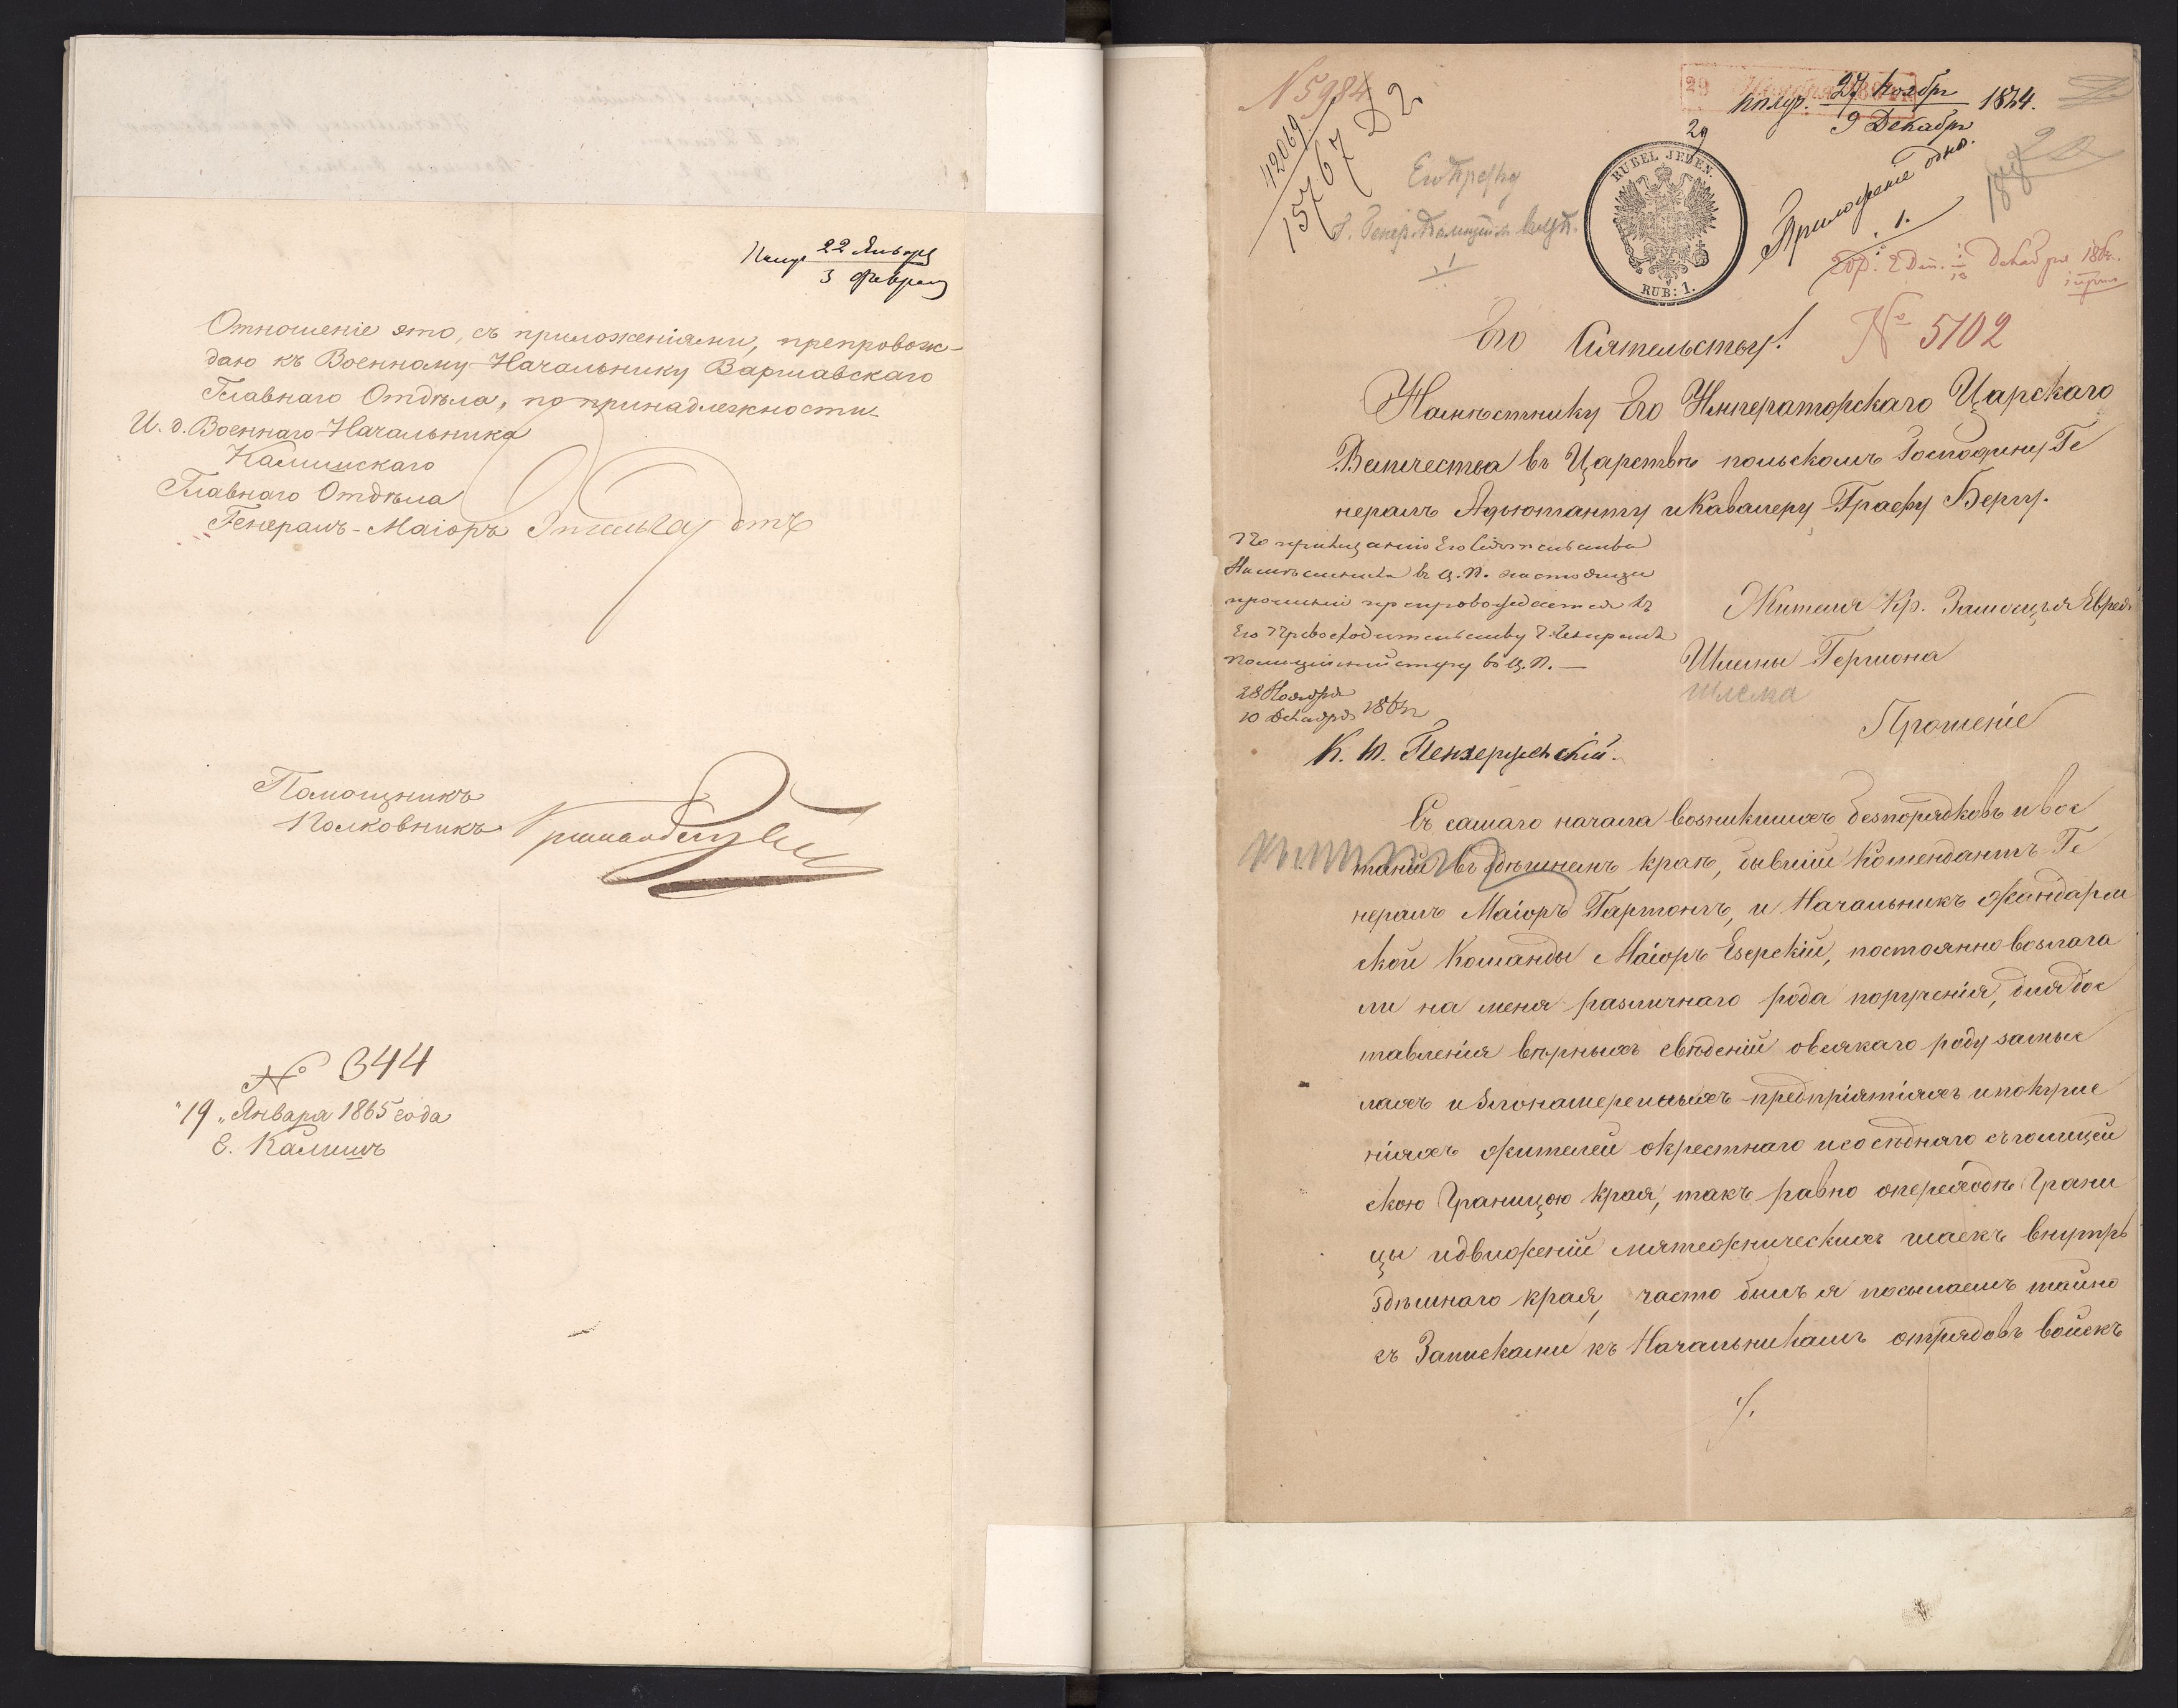 22 Января
3 Февраля
Отношеніе это, съ приложеніями, препровож-
даю къ Военному Начальнику Варшавскаго
Главнаго Отдѣла, по принадлежности
И. д. Военнаго Начальника
Калишскаго
Главнаго Отдѣла
Генералъ-Маіоръ
Помощникъ
Полковникъ
№ 344
"19" Января 1865 года
г. Калишъ
N 5984
42069
15767
27 Ноября
9 Декабря
1864.
29
RUBEL JEDEN.
RUB: 1.
Приложеніе одно.
1.
188
№ 5102
Его Сіятельству!
Намѣстнику Его Императорскаго Царскаго
Величества въ Царствѣ польскомъ Господину Ге
нералъ Адьютанту и Кавалеру Графу Бергу.
По приказанію Его Сіятельства
Намѣстника въ Ц. П. настоящее
прошеніе препровождается къ
Его Превосходительству Г. Генералъ
Полицiймейстеру въ Ц. П. —
28 Ноября
10 Декабря 1864
Жителя Кр. Замосцья Еврея
Шлемы Гершона
Шлема
Прошеніе
Съ самаго начала возникшихъ безпорядковъ и вос
таній въ здѣшнемъ краѣ, бывшій Комендантъ Ге
нералъ Маіоръ Гартонгъ, и Начальникъ Жандарм
ской Команды Маіоръ Езерскій, постоянно возлага
ли на меня различнаго рода порученія, для дос
тавленія вѣрныхъ свѣденій о всякаго роду замыс
лахъ и злонамеренныхъ предпріятіяхъ и покуше
ніяхъ жителей окрестнаго и сосѣдняго съ галицей
скою Границою края, такъ равно о переходѣ Грани
цы и движеній мятежническихъ шаекъ внутрь
здѣшнаго края, часто былъ я посылаемъ тайно
съ Записками къ Начальникамъ отрядовъ войскъ